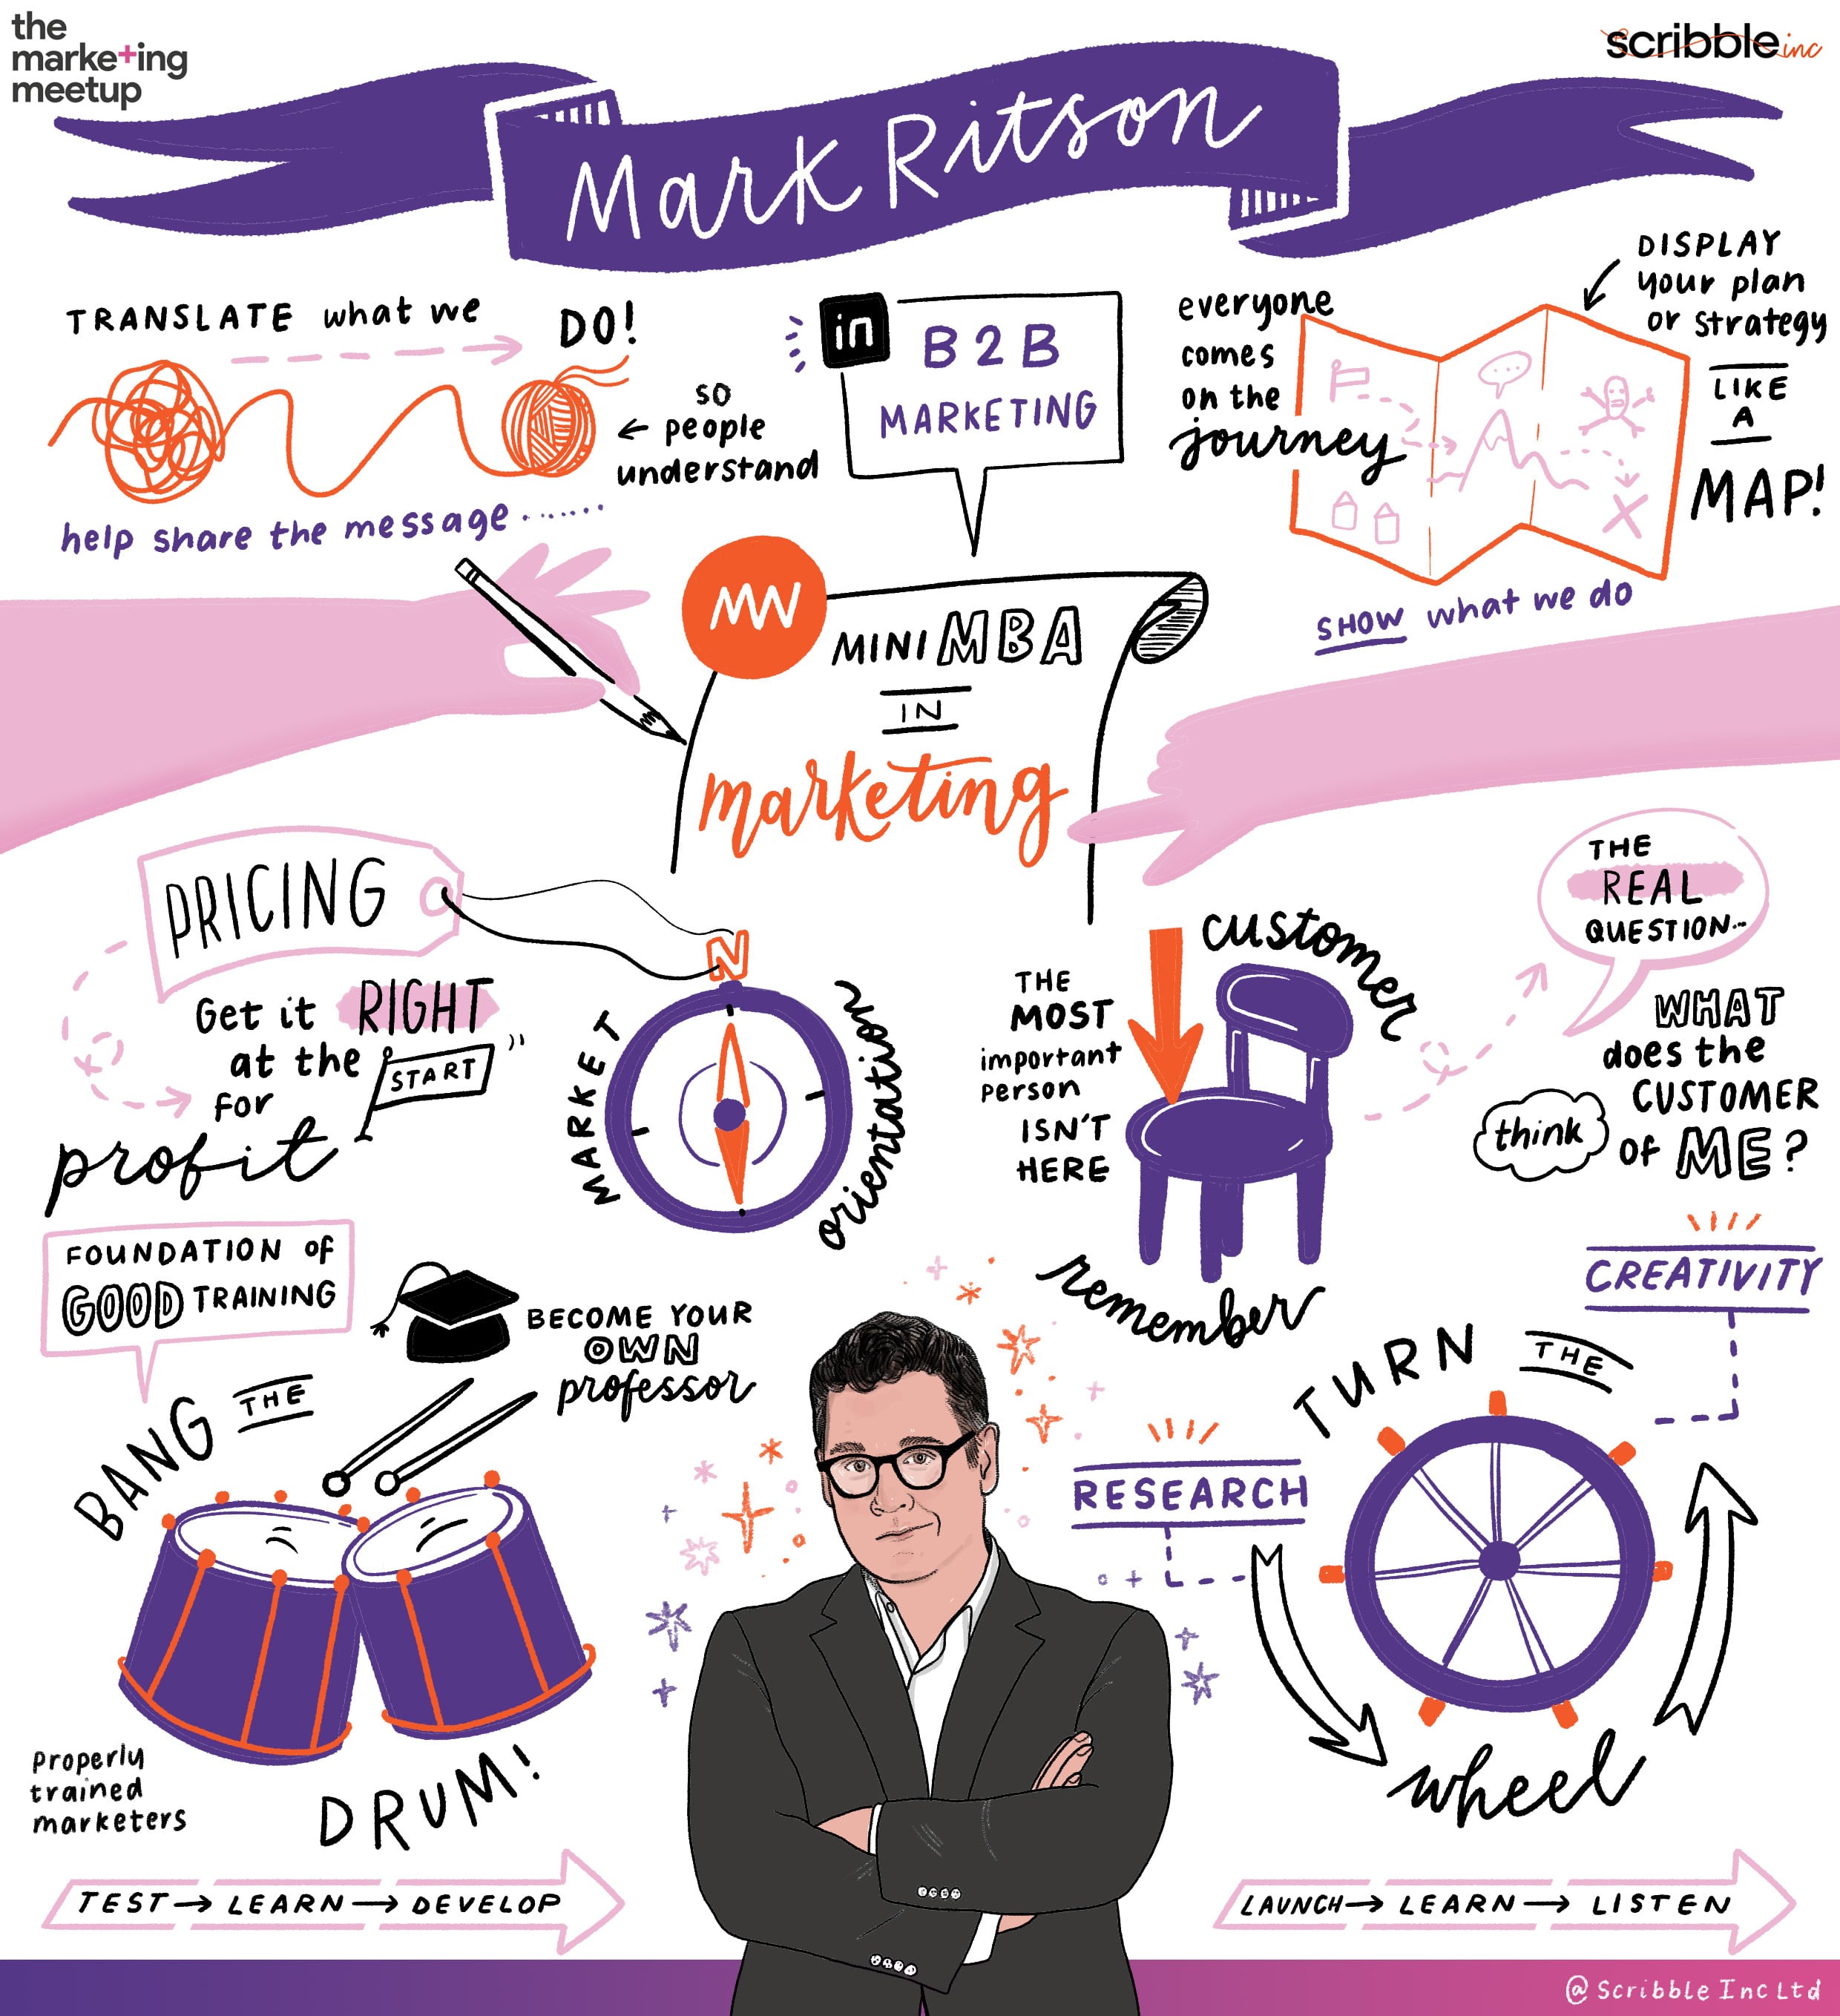 the
marke+ing
meetup
scribble inc
Mark Ritson
TRANSLATE what we
DO!
so
people
understand
help share the message.......
in
B2B
MARKETING
everyone
comes
on the
journey
DISPLAY
your plan
or strategy
LIKE
A
MAP!
SHOW what we do
MW
MINI MBA
IN
marketing
PRICING
Get it RIGHT
at the START
for
profit
N
MARKET
orientation
THE
MOST
important
person
ISN'T
HERE
customer
remember
THE
REAL
QUESTION...
WHAT
does the
CUSTOMER
think of ME?
FOUNDATION of
GOOD TRAINING
BECOME YOUR
OWN
professor
BANG THE
DRUM!
Properly
trained
marketers
CREATIVITY
RESEARCH
TURN THE
wheel
TEST → LEARN → DEVELOP
LAUNCH → LEARN → LISTEN
@ Scribble Inc Ltd